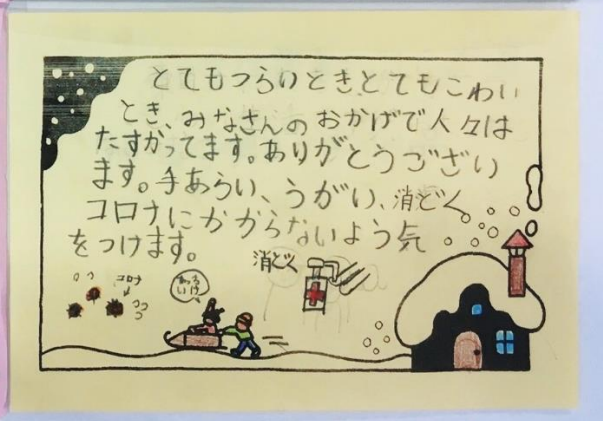 とてもつらいとき、とてもこわい
とき、みなさんのおかげで人々は
たすかってます。ありがとうござい
ます。手あらい、うがい、消どく
コロナにかからないよう気
をつけます。
消どく
コロナ